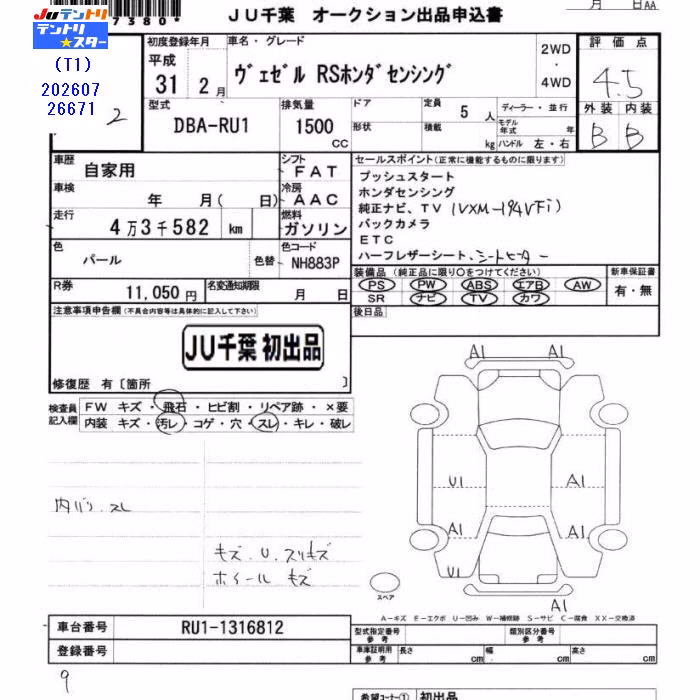 7380*
JUテントリ
テントリ★スター
(T1)
202607
26671
2
JU千葉 オークション出品申込書
月 日AA
初度登録年月
平成
31年 2月
車名・グレード
ヴェゼル RSホンダセンシング
2WD
・
4WD
評価点
4.5
外装 内装
B B
型式
DBA-RU1
排気量
1500
CC
ドア
形状
定員 5 人
積載 kg
ディーラー・並行
モデル年式 年
ハンドル 左・右
車歴
自家用
シフト
FAT
車検
年 月( 日)
冷房
AAC
走行
4万3千582 km
燃料
ガソリン
色
パール
色替
色コード
NH883P
R券
11,050円
名変通知期限
月 日
セールスポイント(正常に機能するものに限ります)
プッシュスタート
ホンダセンシング
純正ナビ、TV (VXM-194VFi)
バックカメラ
ETC
ハーフレザーシート、シートヒーター
装備品 (純正品に限り○をつけてください)
PS PW ABS エアB AW
SR ナビ TV カワ
新車保証書
有・無
後日品
注意事項申告欄(不具合内容等は具体的に記入して下さい)
JU千葉 初出品
修復歴 有〔箇所 〕
検査員記入欄
FW キズ・飛石・ヒビ割・リペア跡・×要
内装 キズ・汚レ・コゲ・穴・スレ・キレ・破レ
内バリ、スレ
キズ.U.スリキズ
ホイールキズ
A1 A1
U1 A1
A1 A1
U1
A1
スペア
A－キズ E－エクボ U－凹み W－補修跡 S－サビ C－腐食 XX－交換済
車台番号 RU1-1316812
登録番号
型式指定番号 参考
類別区分番号 参考
車庫証明用 参考 長さ cm 幅 cm 高さ cm
9
希望コーナー① 初出品